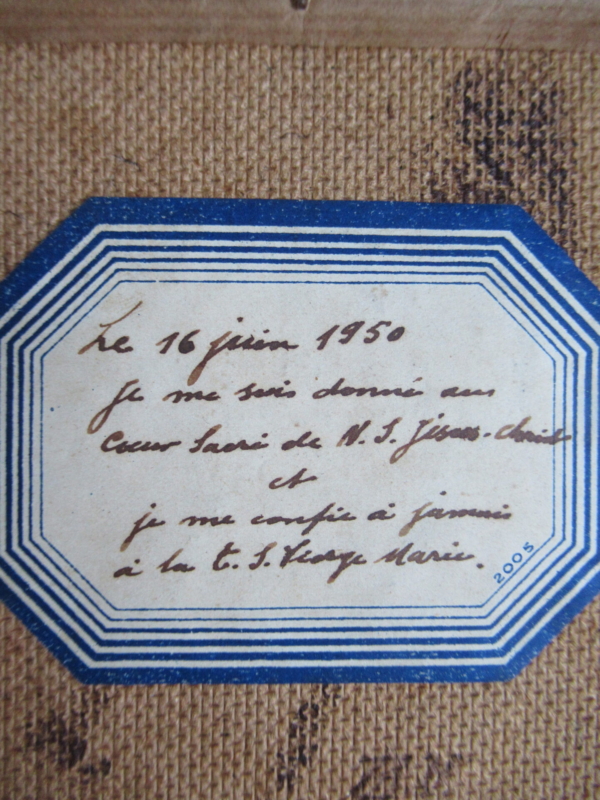 Le 16 juin 1950
je me suis donné au
Coeur Sacré de N. S. Jésus-Christ
et
je me confie à jamais
à la T. S. Vierge Marie.
2005